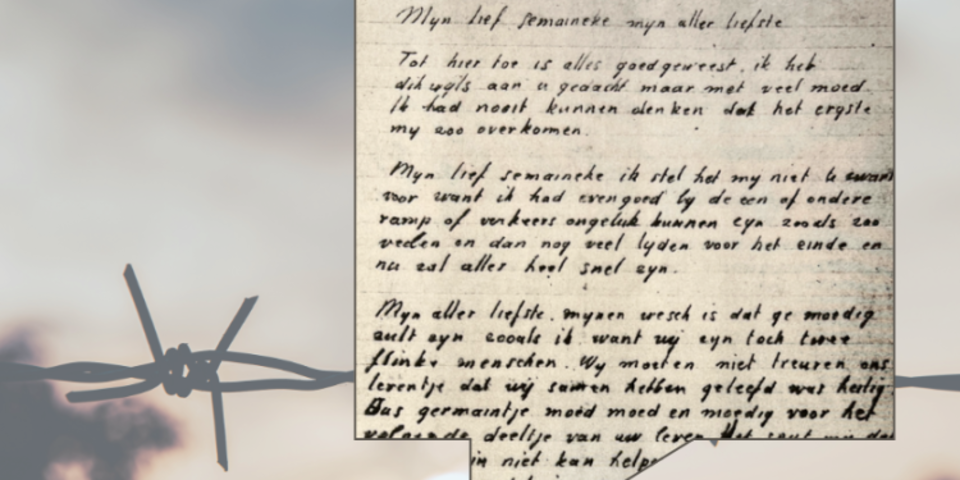 Myn lief semaineke myn aller liefste
Tot hier toe is alles goed geweest. ik heb
dikwyls aan u gedacht maar met veel moed
Ik had nooit kunnen denken dat het ergste
my zoo overkomen.
Myn lief semaineke ik stel het my niet te zwaar
voor want ik had evengoed by de een of andere
ramp of verkeers ongeluk kunnen zyn zooals zoo
velen en dan nog veel lyden voor het einde en
nu zal alles heel snel zyn.
Myn aller liefste. mynen wesch is dat ge moedig
zult zyn zooals ik want wij zyn toch twee
flinke menschen. Wy moeten niet treuren ons
leventje dat wij samen hebben geleefd was heilig
Dus germaintje moed moed en moedig voor het
volgende deeltje van uw leven
in niet kan